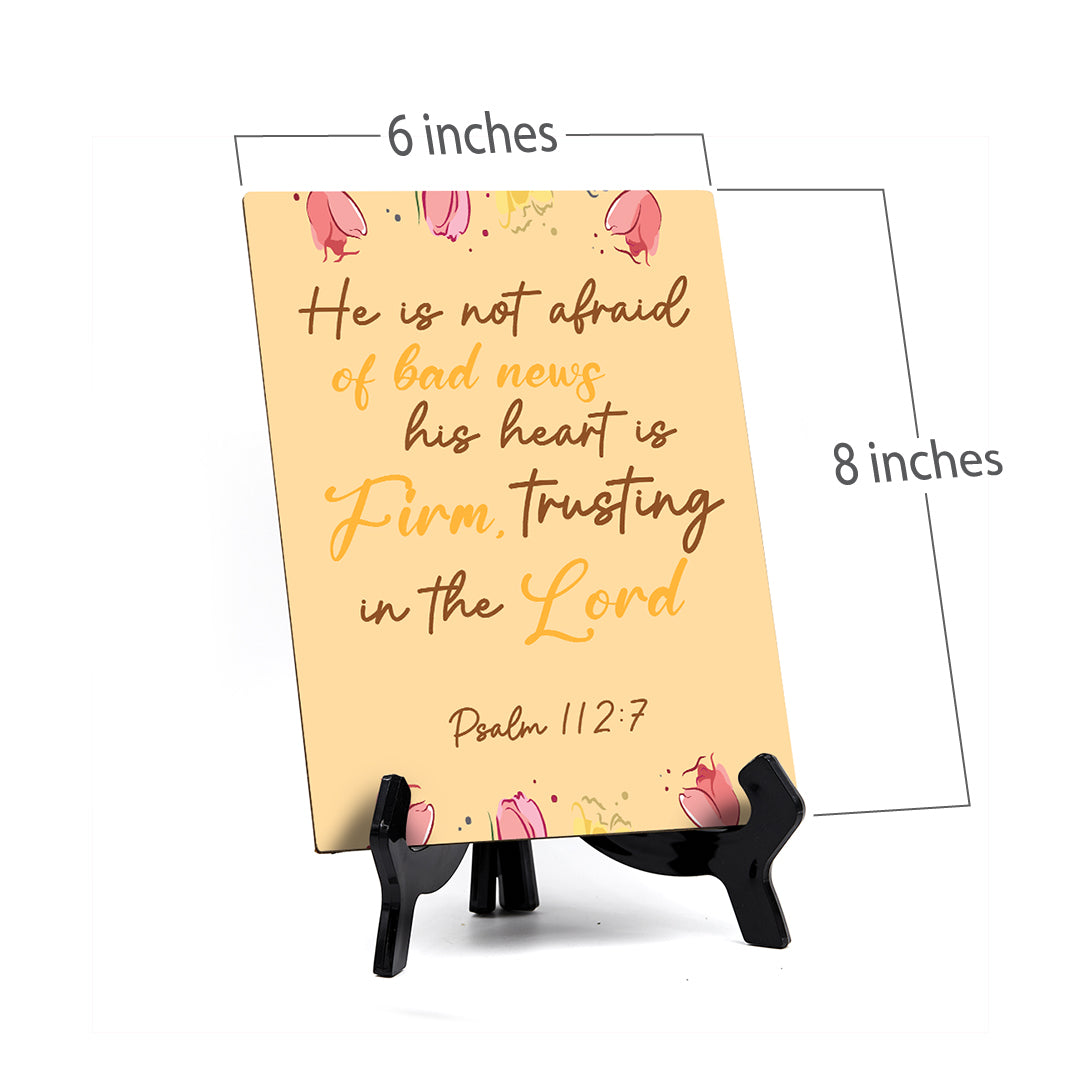 6 inches
He is not afraid
of bad news
his heart is
Firm, trusting
in the Lord
8 inches
Psalm 112:7